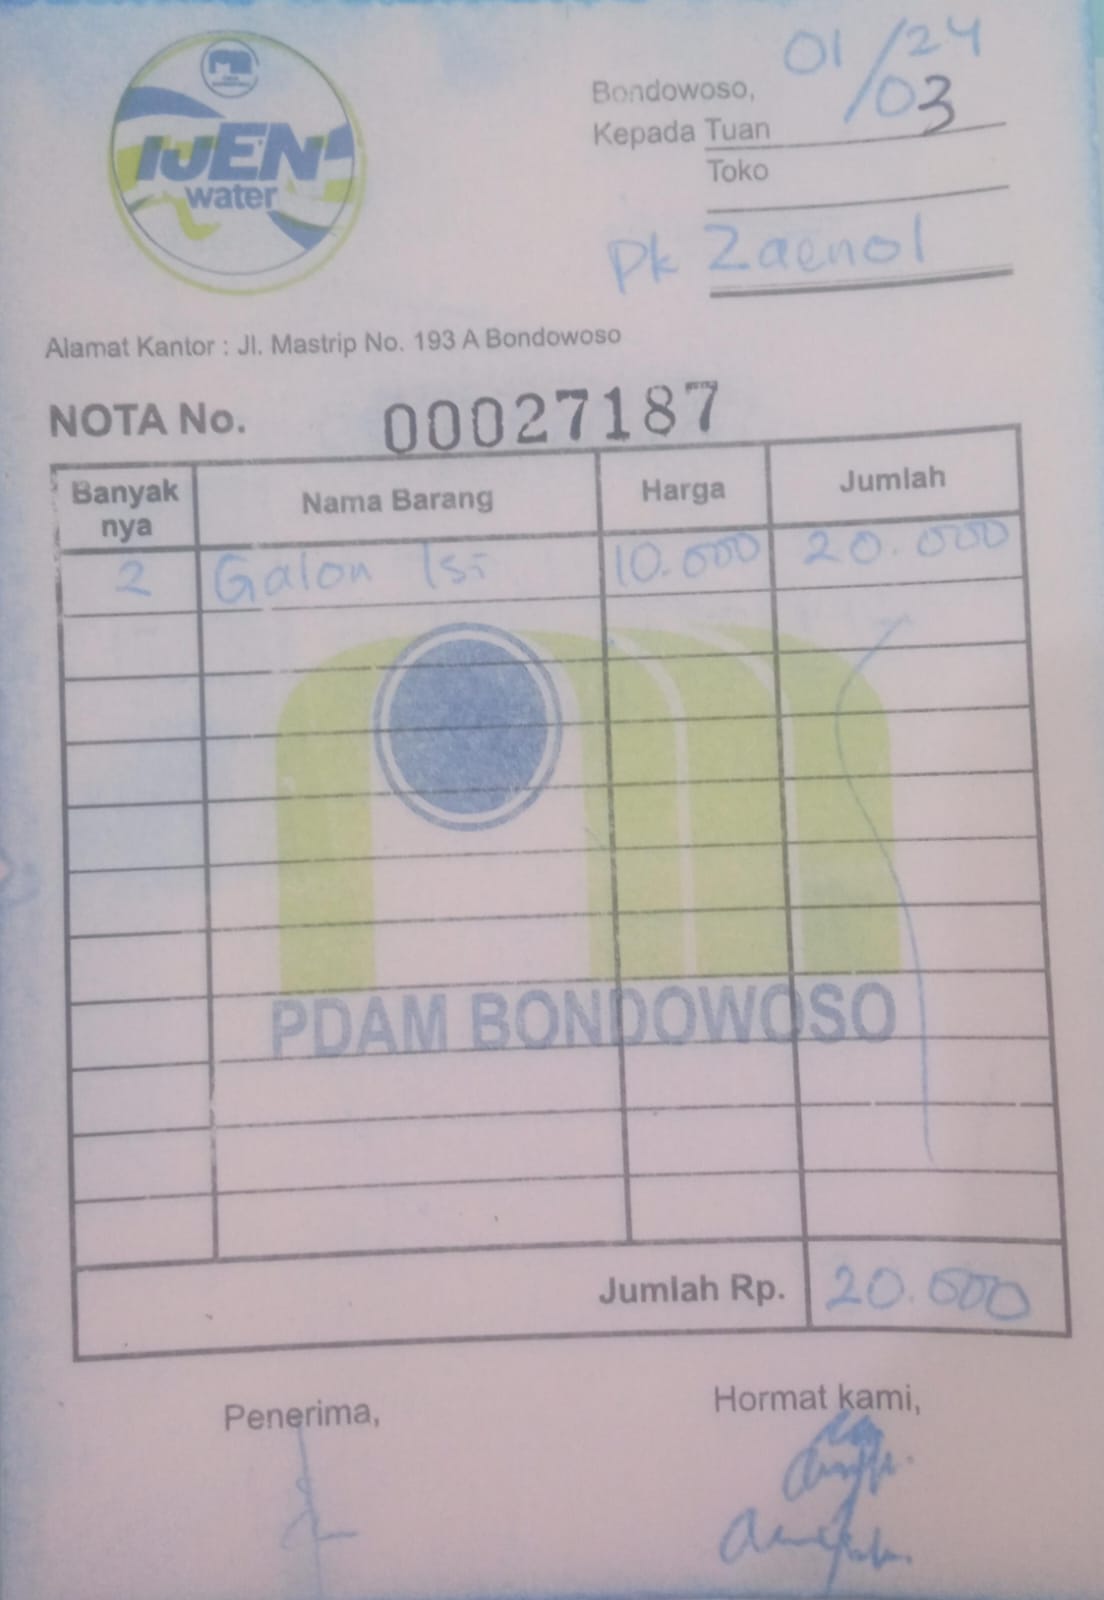 IJEN
water
Bondowoso, 01/03 24
Kepada Tuan
Toko
Pk Zaenol
Alamat Kantor : Jl. Mastrip No. 193 A Bondowoso
NOTA No. 00027187
Banyak nya Nama Barang Harga Jumlah
2 Galon Isi 10.000 20.000
PDAM BONDOWOSO
Jumlah Rp. 20.000
Penerima, Hormat kami,